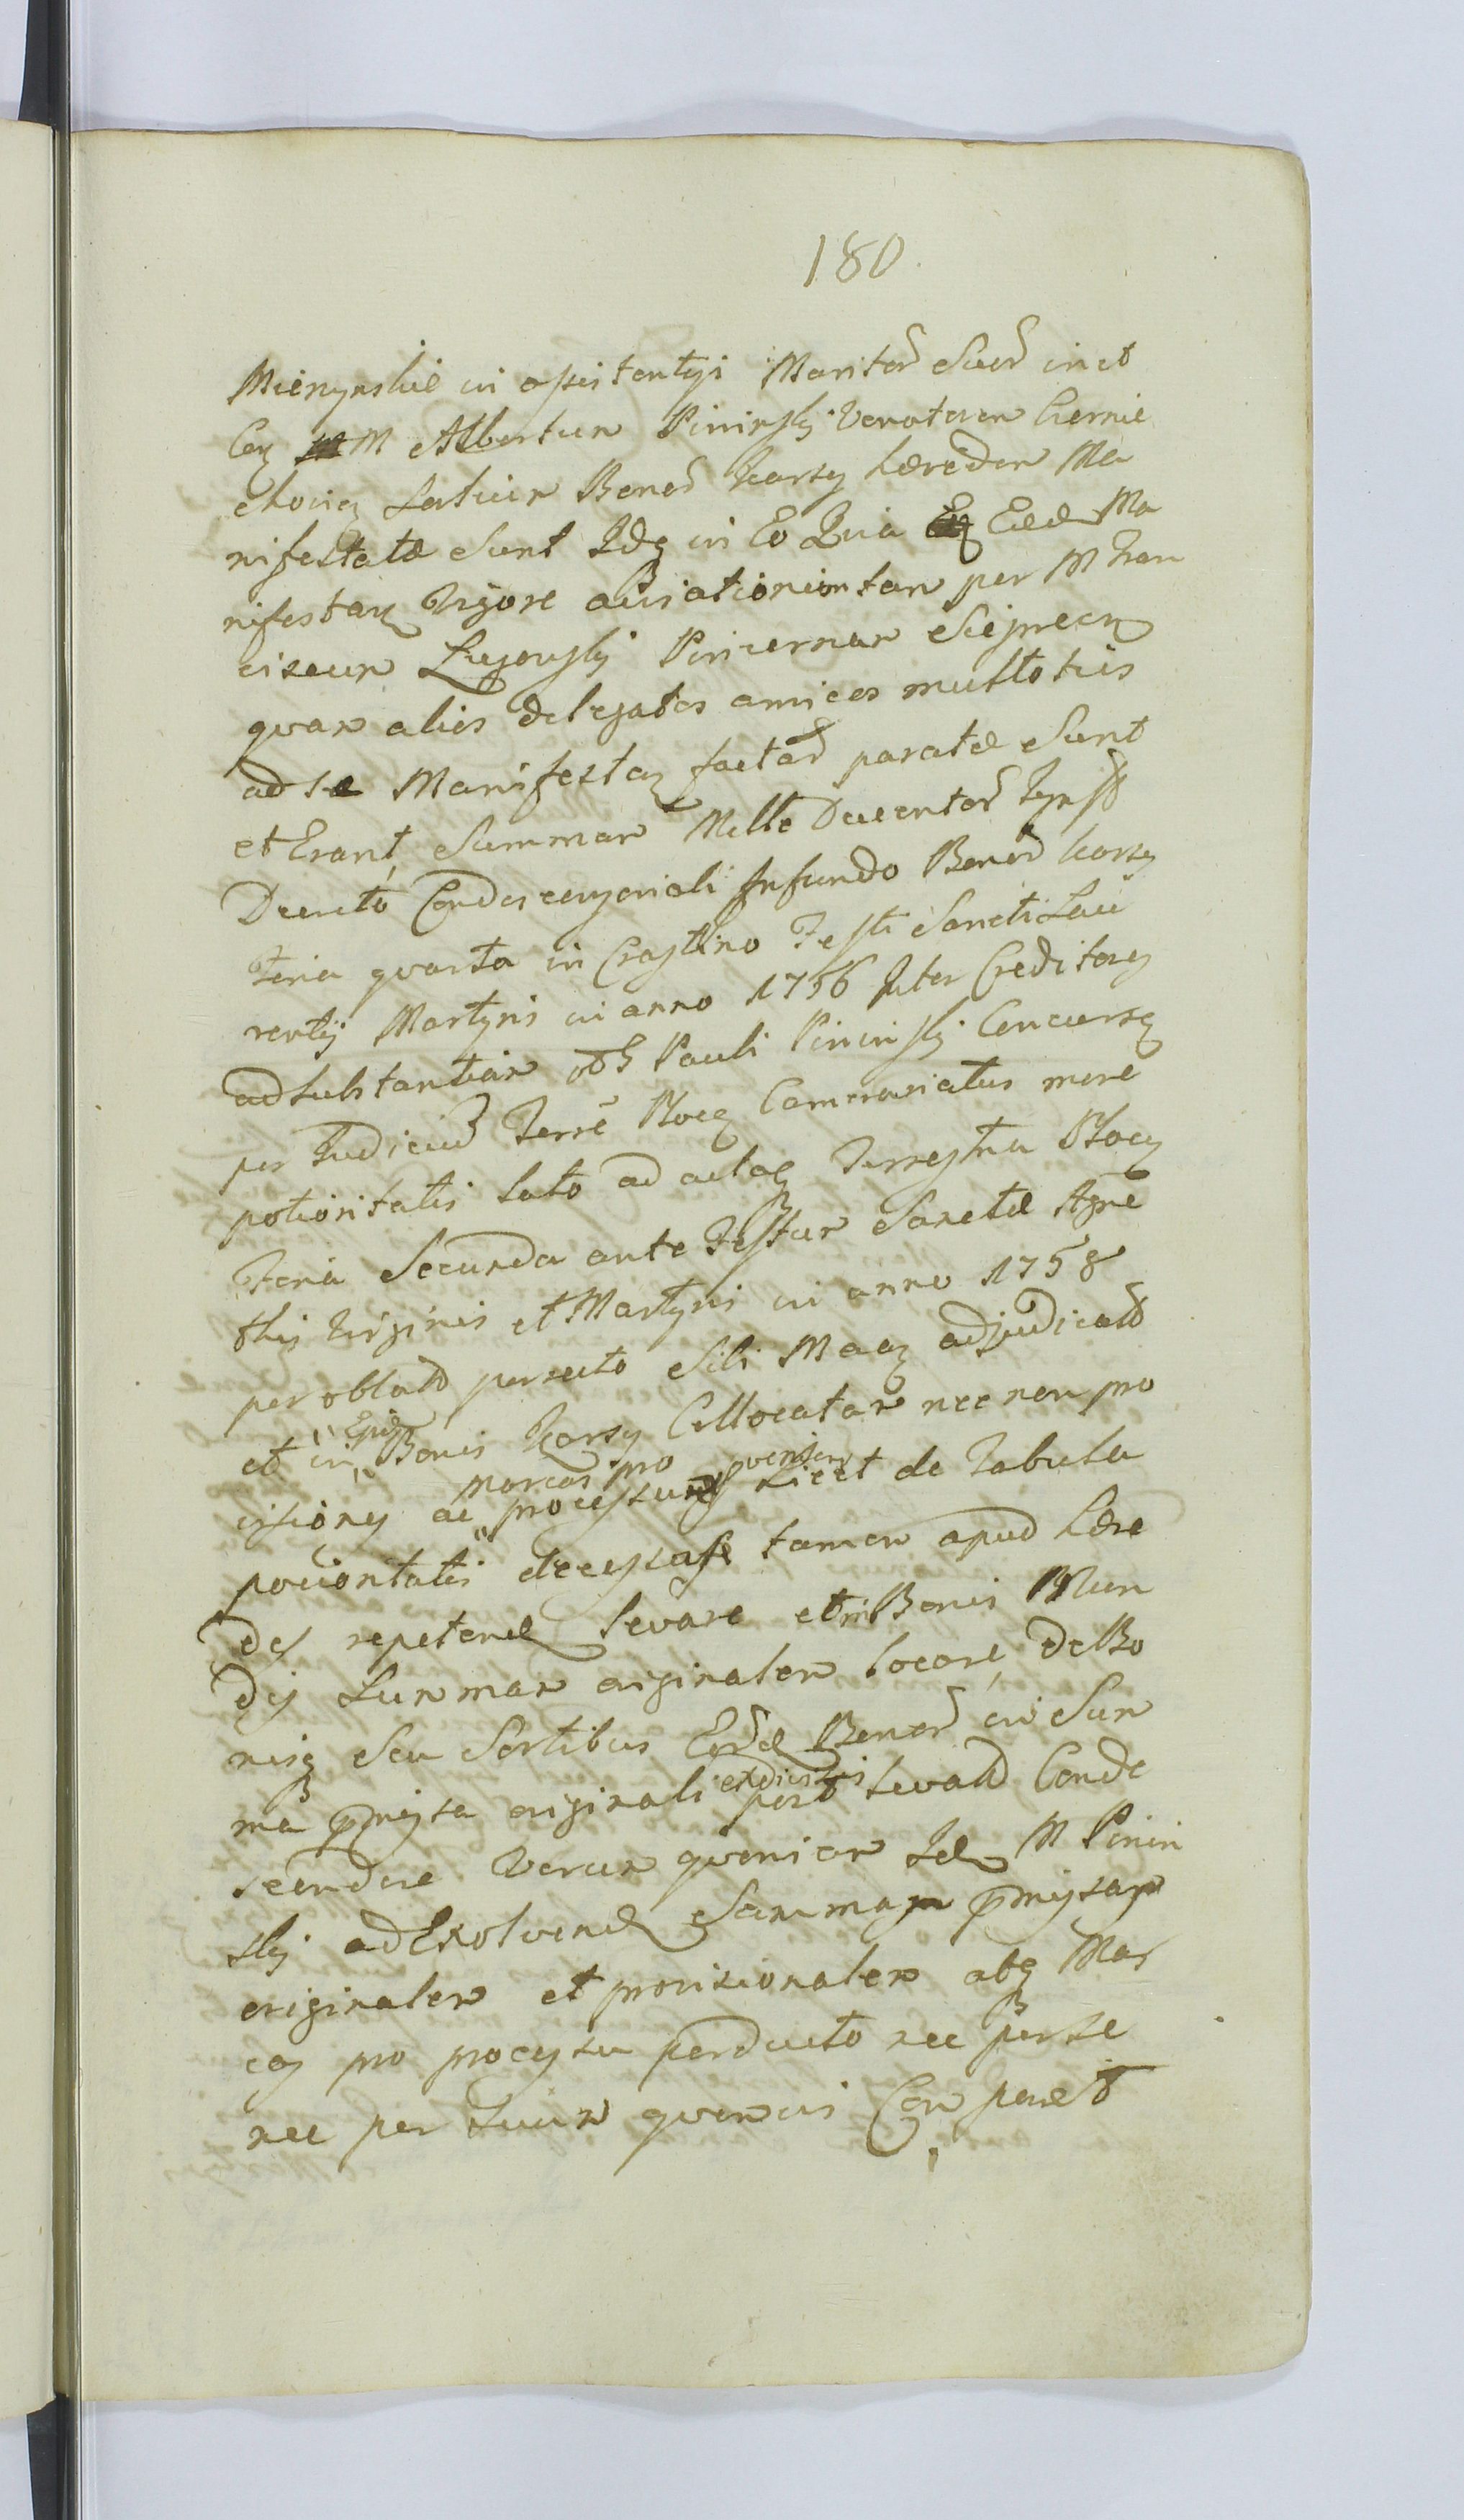 180.
Mierzynskie in assistentyi Maritor Suor in et
Con M Albertum Pininskÿ Venatorem Czernie
chovien totium Bonor Karsy hæredem Ma
nifestatæ sunt Idq in Eo Quia Eædem Ma
nifestan Vigore aviationum tam per M Fran
ciscum Lugowskÿ Pincernam
quam alios delegatos amicos multoties
ad se Manifestan factar paratæ sunt
et Erant, summam Mille Ducentor
Decreto Condescensoriali In fundo Bonor Karsy
Feria quarta in Crastino Festi Sancti Lau
rentÿ Martyris in anno 1756 Inter Creditores
ad substantiam Pauli Pininskÿ Concursen
per Judiciu Terre Ploce Camerariatus more
potioritatis lato ad actaq Terrestria Plocen
Feria Secunda ante Festum Sanctæ Agne
tis Virginis et Martyris in anno 1758
per oblat porrecto sibi adjudicat
et in Ejusd Bonis Karsy Collocatam nec non pro
visiones ac marcas pro processum licet de Tabula
potioritatis decessas tamen apud hære
des repetend levare et in Bonis Mun
dis summam originalem locare, de Bo
nisq seu Sortibus Eord Bonor in Sum
ma pmissa originali et dictis post levat Conde
scendere Verum quoniam Idem M Pinin
skÿ ad Exolvend Summam pmissam
originalem et provisionalem absq Mar
cas pro processu perducto nec per se
nec per suum quemvis Comparet